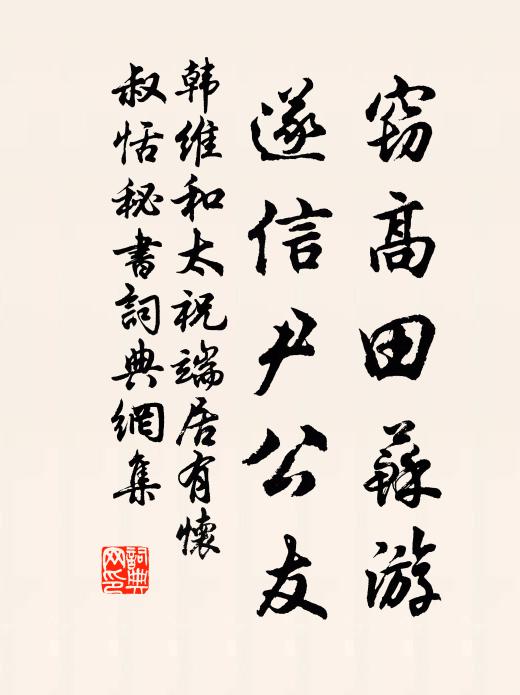 窃高田蘇游
遂信尹公友
韩維和太祝端居有懷
叔恬秘書詞典網集
詞典
网印